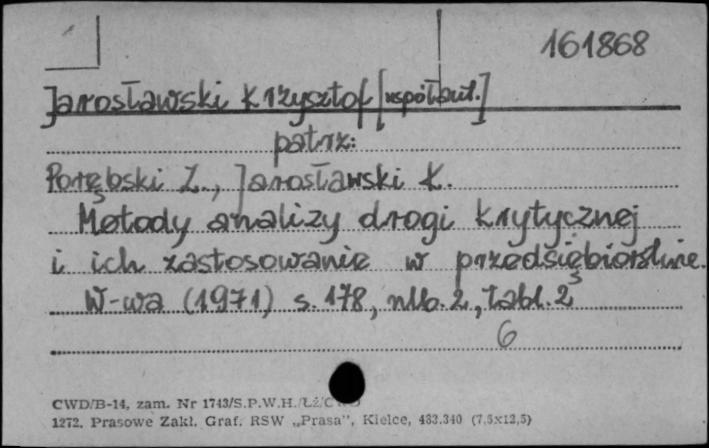 161868
Jarosławski Krzysztof [współaut.]
patrz:
Porębski Z., Jarosławski K.
Metody analizy drogi krytycznej
i ich zastosowanie w przedsiębiorstwie.
W-wa (1971) s. 178, nlb. 2, tabl. 2
6
CWD/B-14, zam. Nr 1743/S.P.W.H./Łź/
1272. Prasowe Zakł. Graf. RSW „Prasa", Kielce, 433.340 (7,5x12,5)